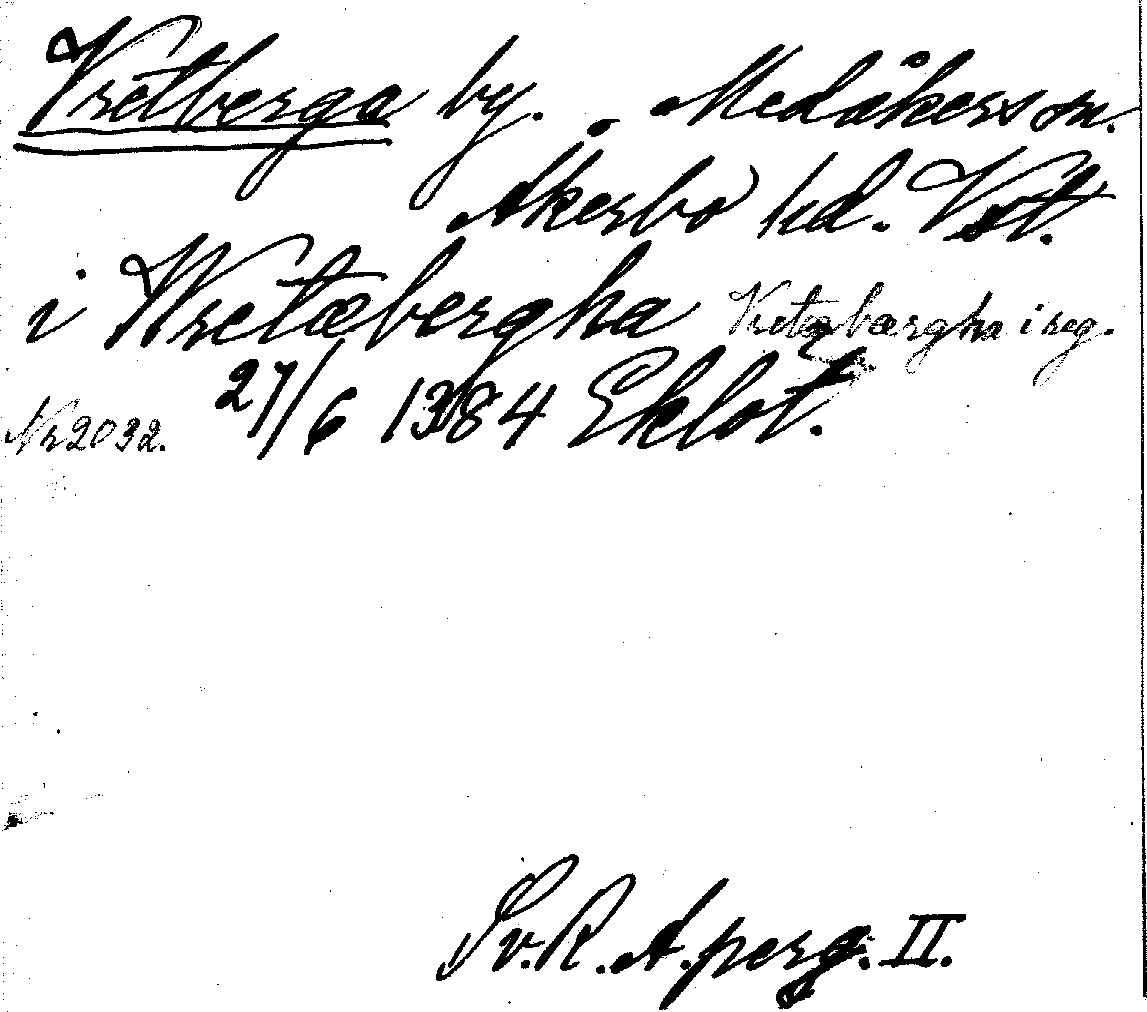 Vretberga by. Medåkers sn.
Åkerbo hd. Vstl.
i Wretæbergha Vretabærgha i reg.
Nr 2032. 27/6 1384 Eklot.
Sv. R. A. perg. II.